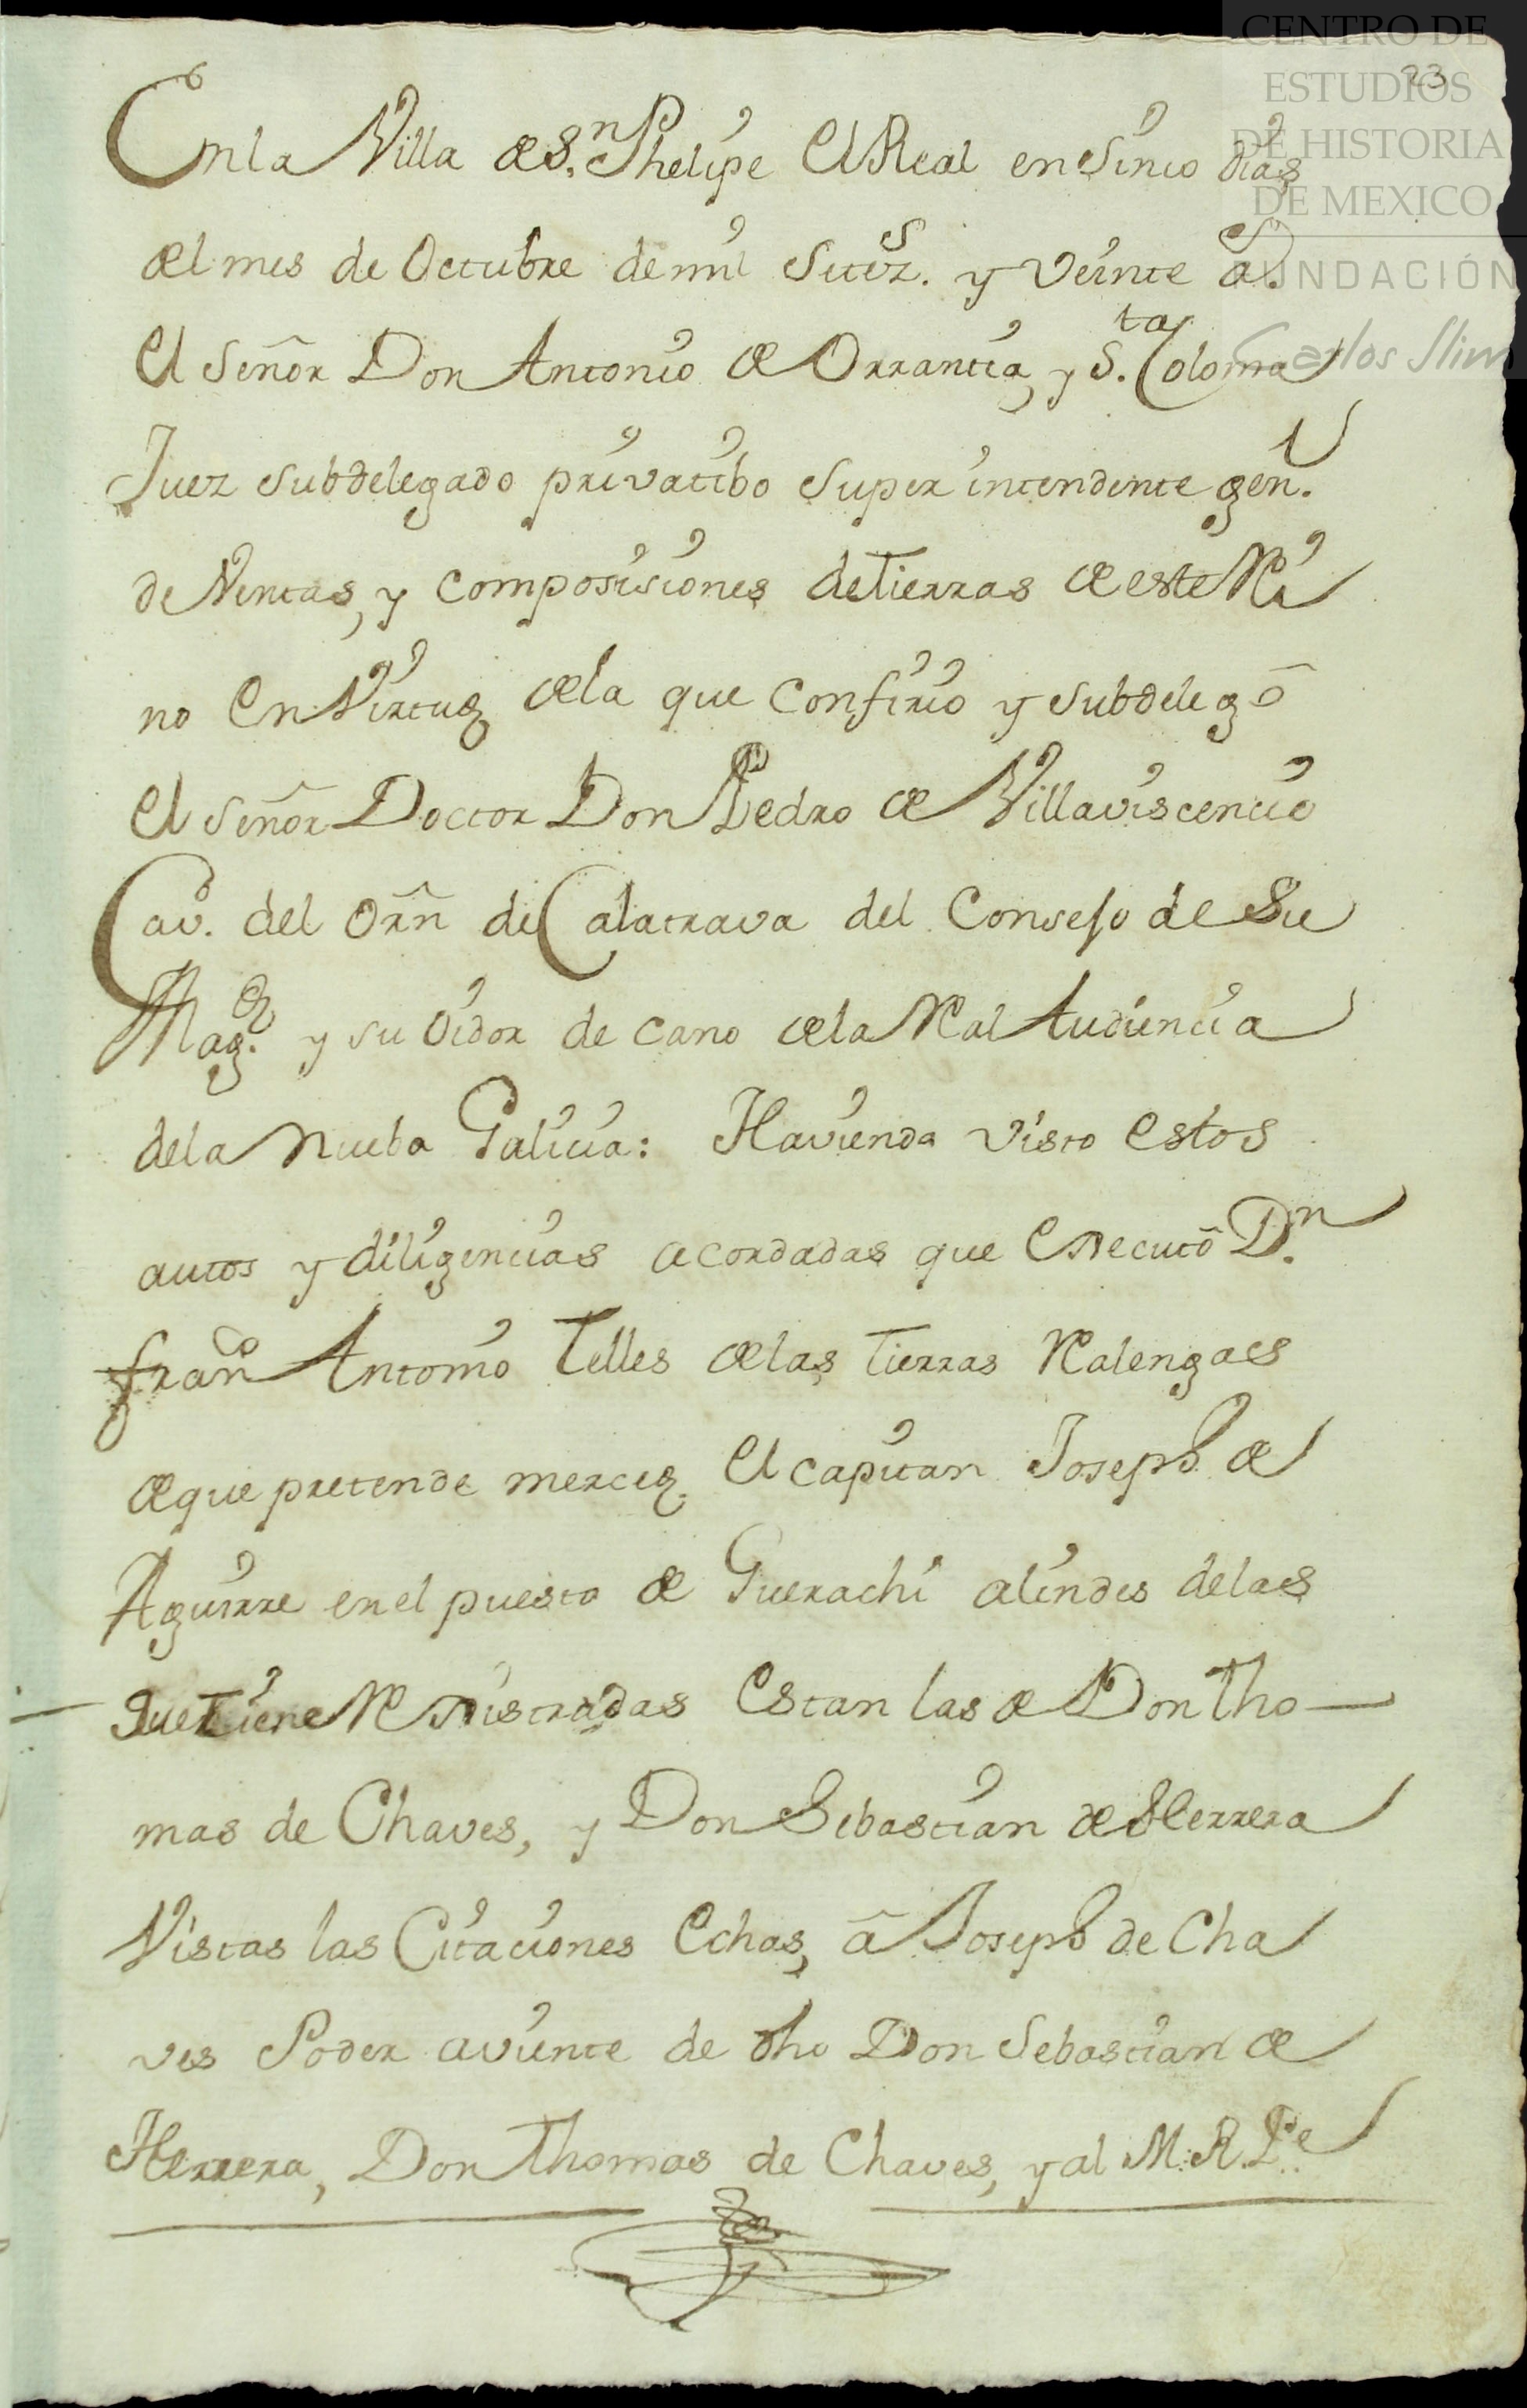 CENTRO DE
ESTUDIOS
DE HISTORIA
DE MEXICO
FUNDACIÓN
Carlos Slim
23
En la Villa de S.n Phelipe El Real en Sinco dias
del mes de Octubre de mil Setez.s y Veinte a.s
El Señor Don Antonio de Orrantia, y S.ta Coloma
Juez Subdelegado privatibo Superintendente gen.l
de Ventas, y Composisiones de Tierras de este Rei
no En Virtud de la que Confirio y Subdelegó
El Señor Doctor Don Pedro de Villaviscencio
Cav.o del Orñ de Calatrava del Consejo de Su
Mag.d y su Oidor de cano de la Real Audiencia
de la Nueba Galicia: Haviendo Visto Estos
autos y diligencias acordadas que Execcutó D.n
Fran.co Antonio Telles de las Tierras Realengas
de que pretende merced El Capitan Joseph de
Aguirre en el puesto de Guerachi alindes de las
que Tiene Rexistradas Estan las de Don Tho—
mas de Chaves, y Don Sebastian de Herrera
Vistas las Citaciones Echas, á Joseph de Cha
ves Poder aviente de dho Don Sebastian de
Herrera, Don Thomas de Chaves, y al M.R.P.e